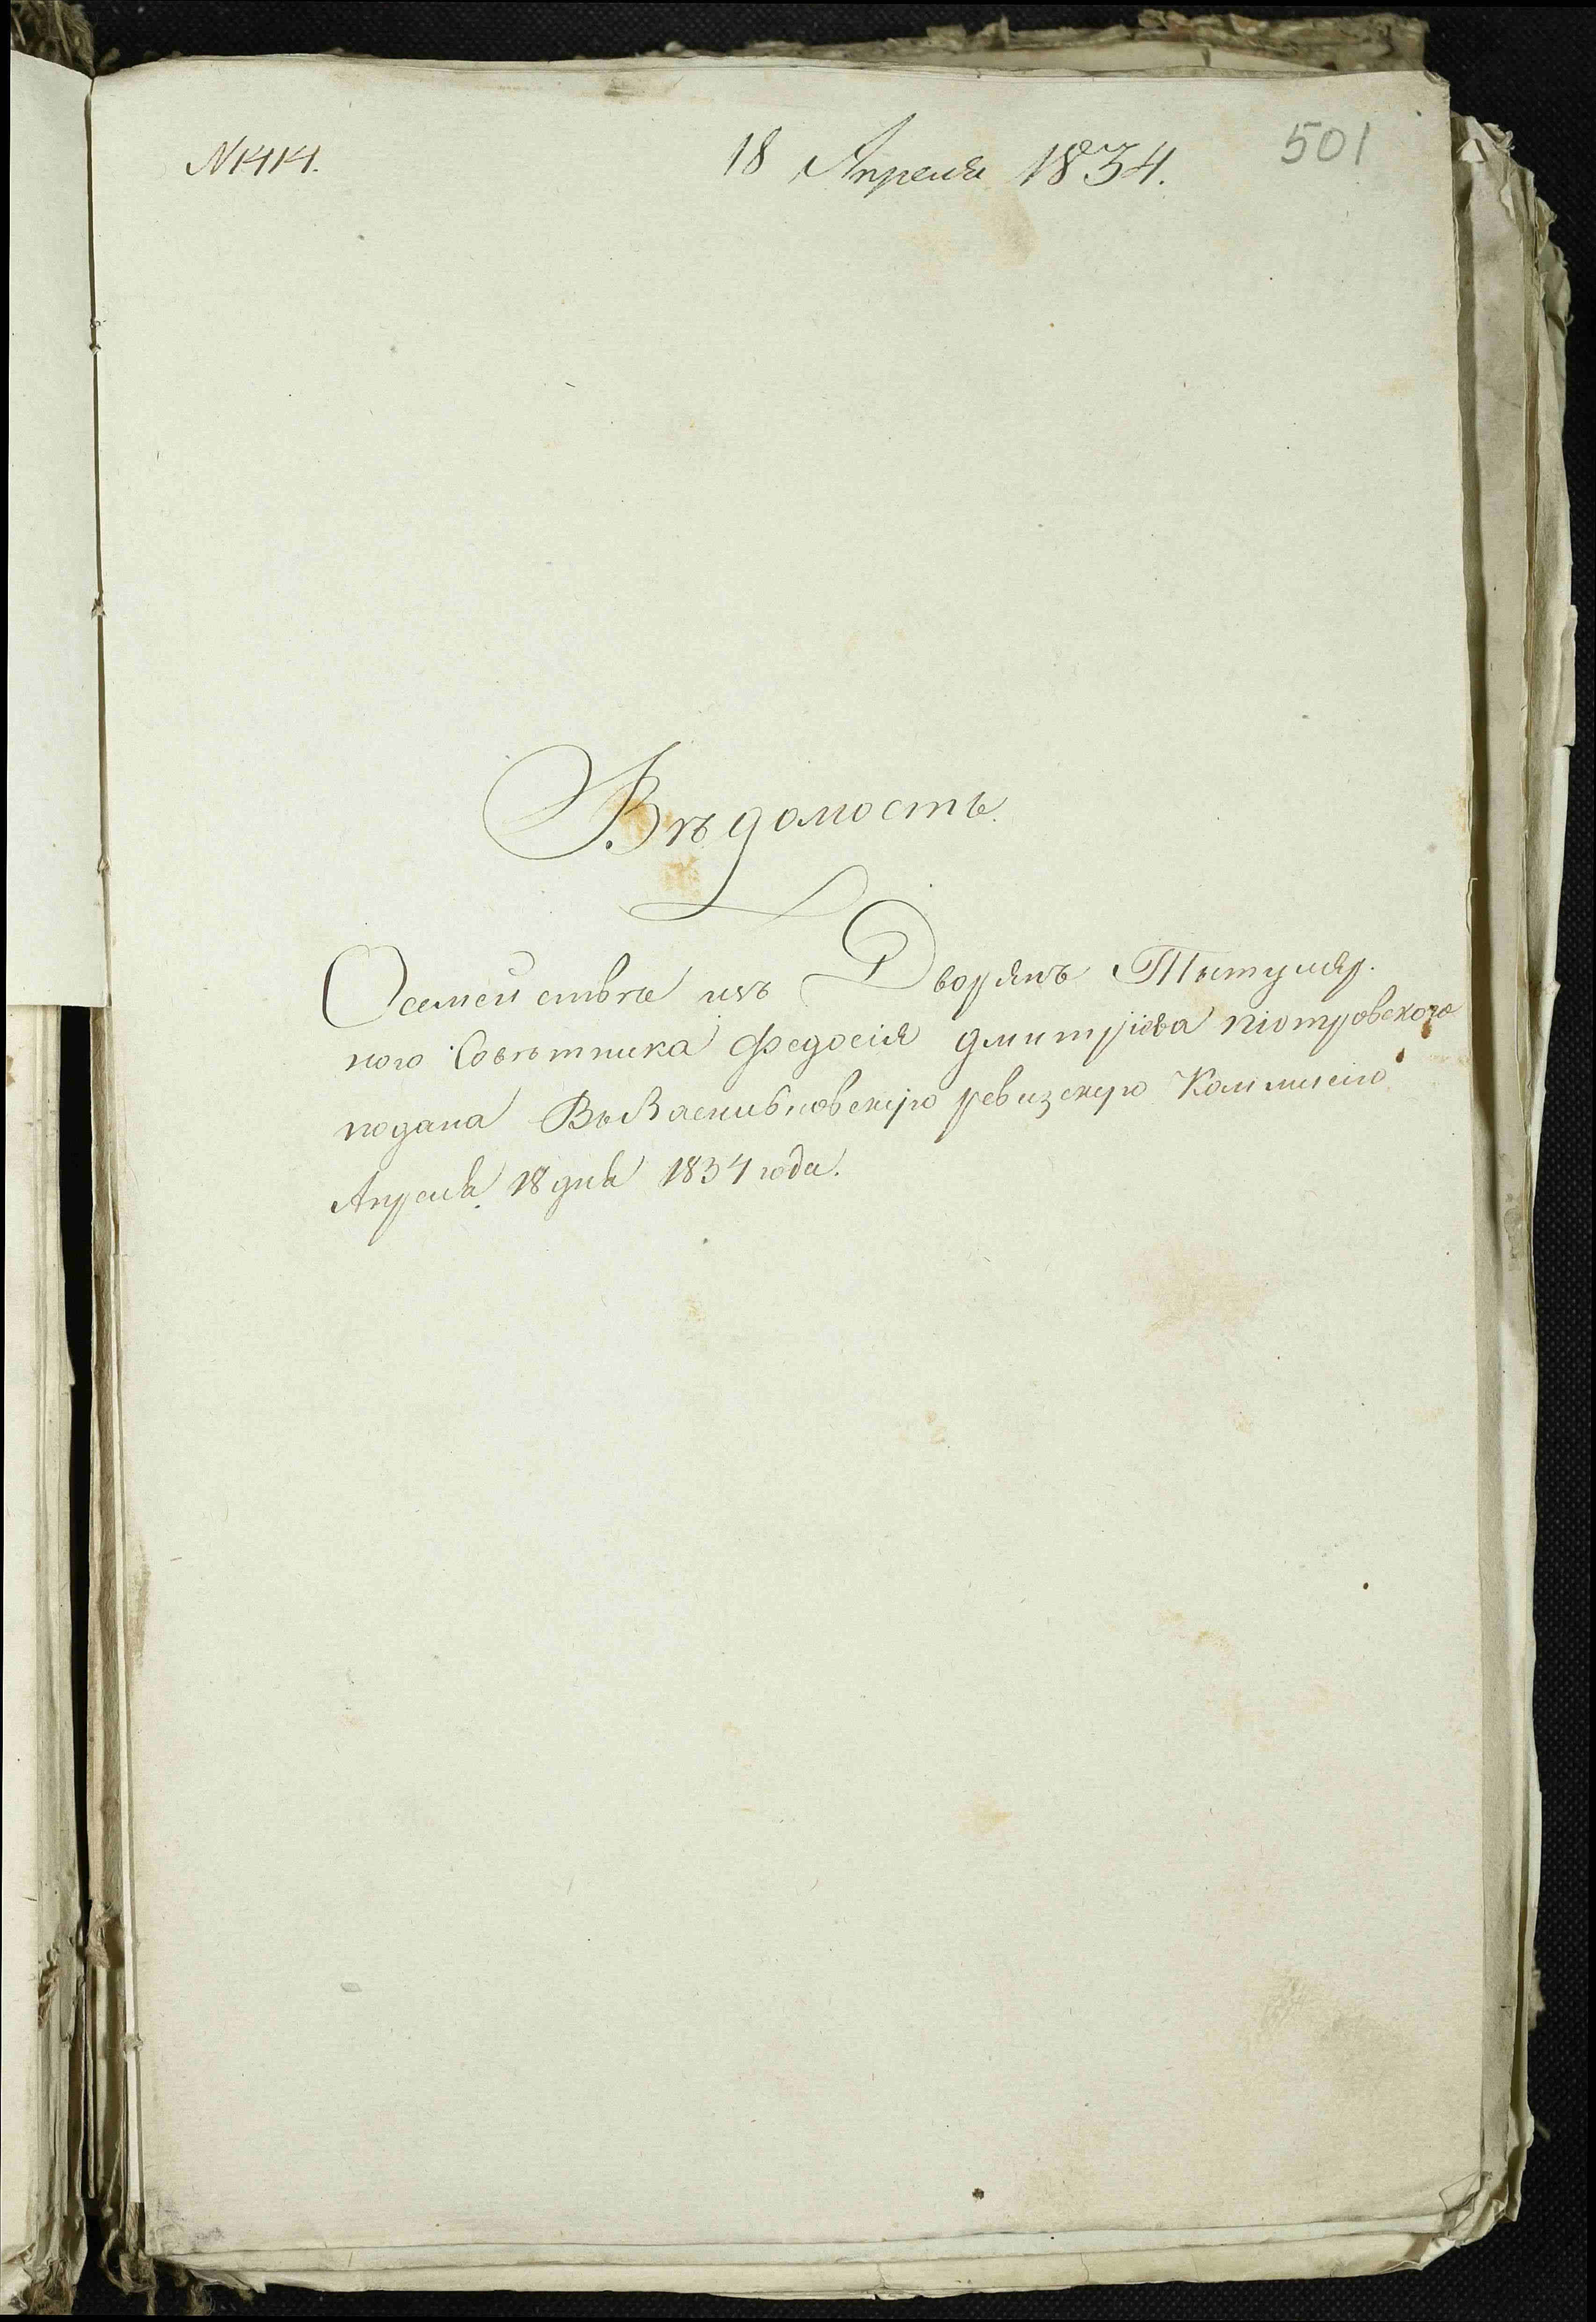 N 1414.
18 Апреля 1834.
501
Вѣдомость.
О семействѣ изъ Дворянъ Титуляр.
ного Совѣтника Федосія Дмитріева Піотровского
подана Въ Васильковскую ревизскую Коммисію
Апреля 18 дня 1834 года.